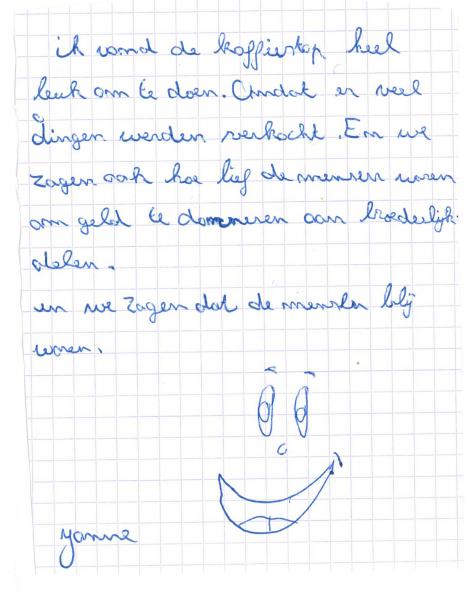 ik vond de koffiestop heel
leuk om te doen. Omdat er veel
dingen werden verkocht. En we
zagen ook hoe lief de mensen waren
om geld te donneren aan broederlijk
delen.
en we zagen dat de mensen blij
waren.
Yanne